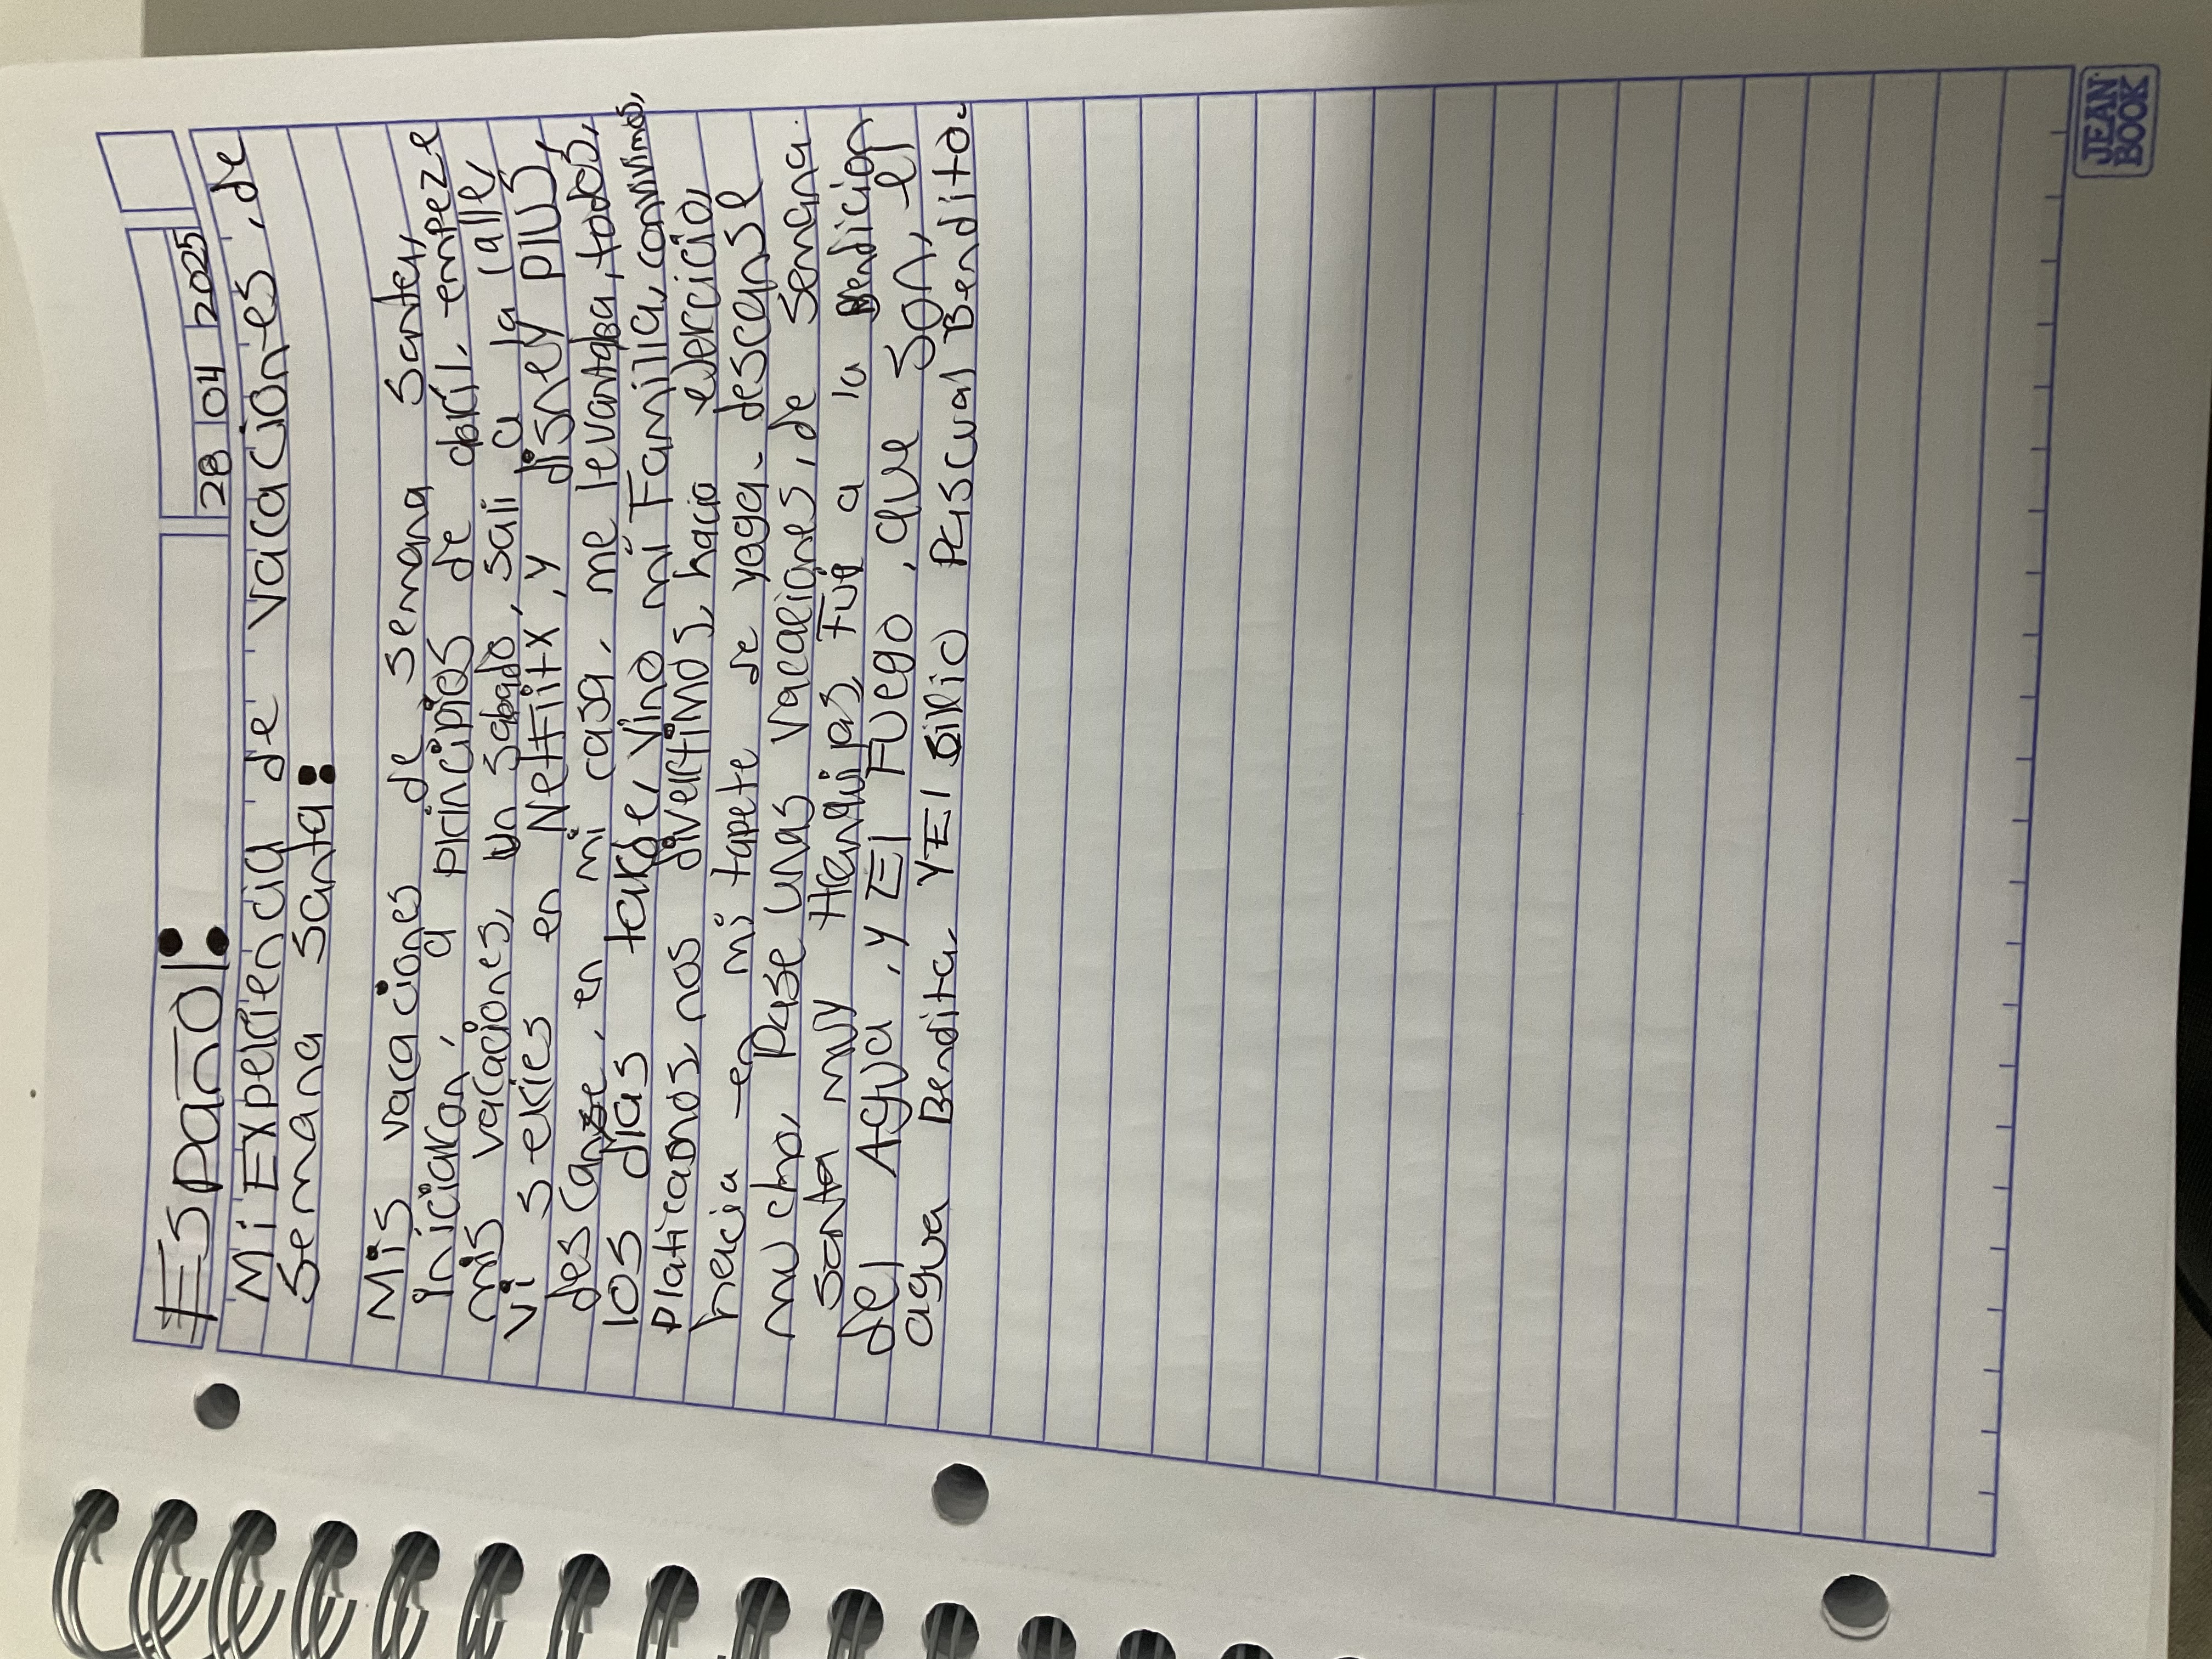 Español:
28 04 2025
Mi Experiencia de vacaciones, de
Semana Santa:
Mis vacaciones de semana santa,
iniciaron, a principios de abril. empeze
mis vacaciones, un sabado, sali a la calle,
vi series en Netflitx, y disney plus,
descanse, en mi casa, me levantaba, todos,
los dias tarde, vino mi Familia, convivimos,
Platicamos, nos divertimos, hacia ejercicio,
hacia en mi tapete de yoga. descanse
mucho, Pase unas vacaciones, de semana.
santa muy tranquipas, Fui a la Bendicion
del Agua, y El Fuego, que son, el
agua Bendita, Y El Sirio Pascual Bendito.
JEAN
BOOK